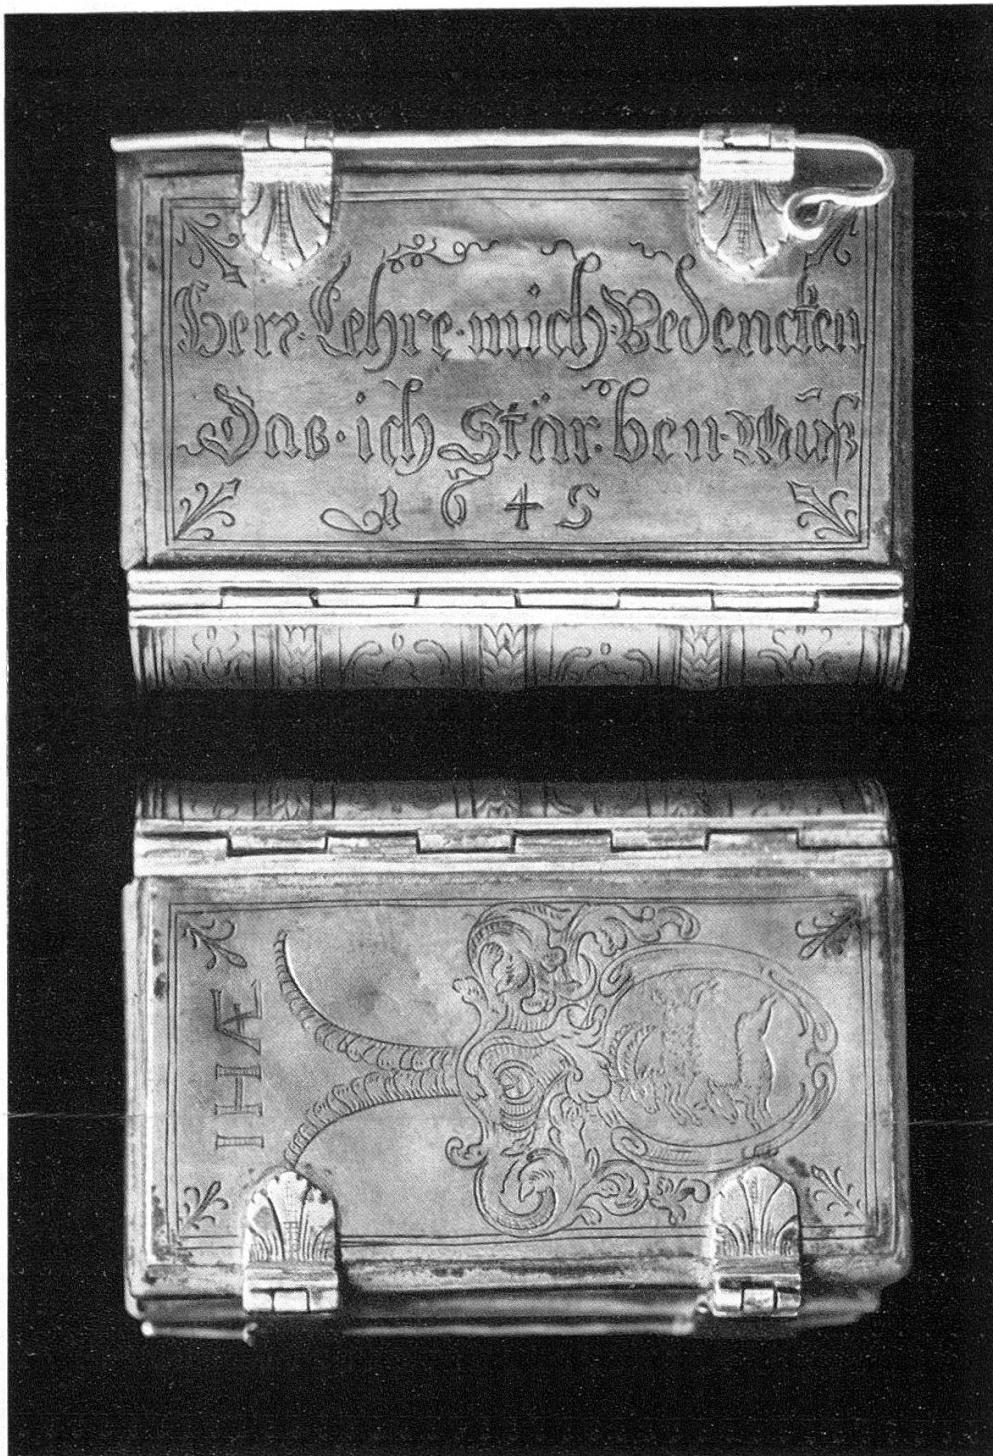 Herr·Lehre·mich·Bedencken
Das·ich·Stär·ben·Muß
1645
IHÆ